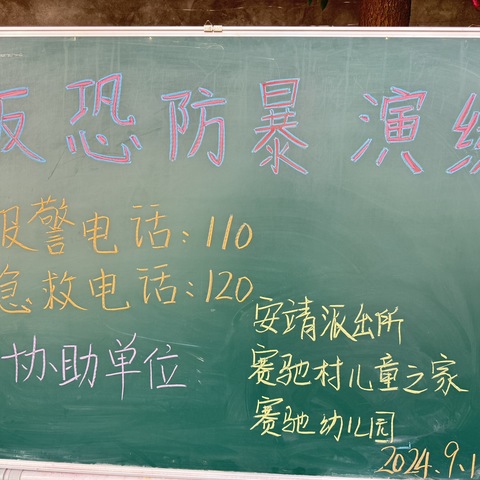 反恐防暴演练
报警电话:110
急救电话:120
协助单位
安靖派出所
赛驰村儿童之家
赛驰幼儿园
2024.9.1